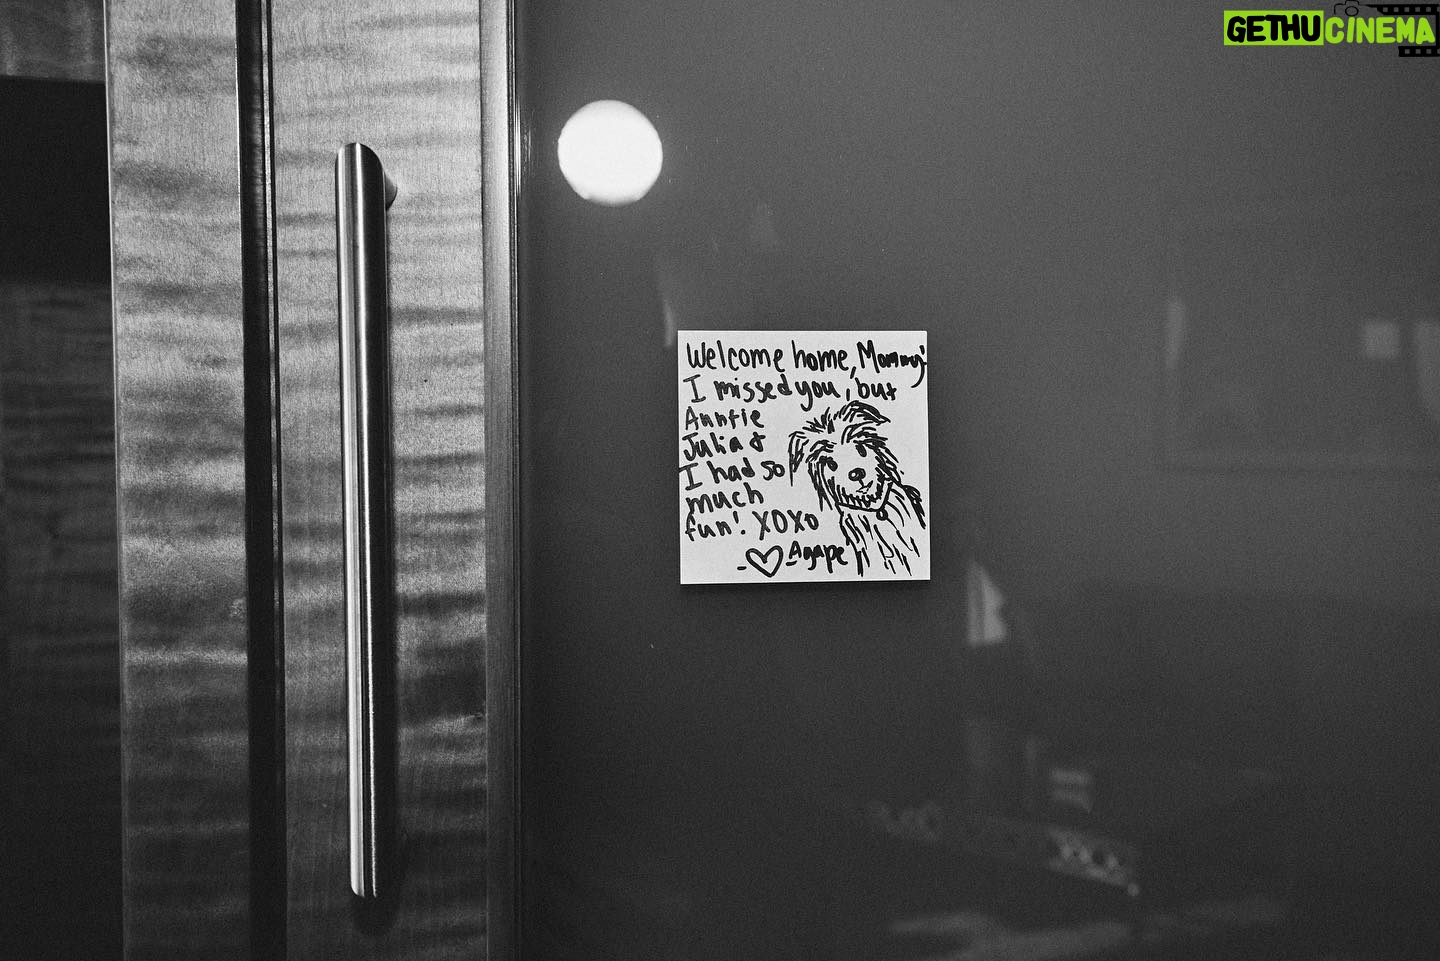 GETHUCINEMA
Welcome home, Mommy!
I missed you, but
Auntie
Julia &
I had so
much
fun! XOXO
-♡-Agape